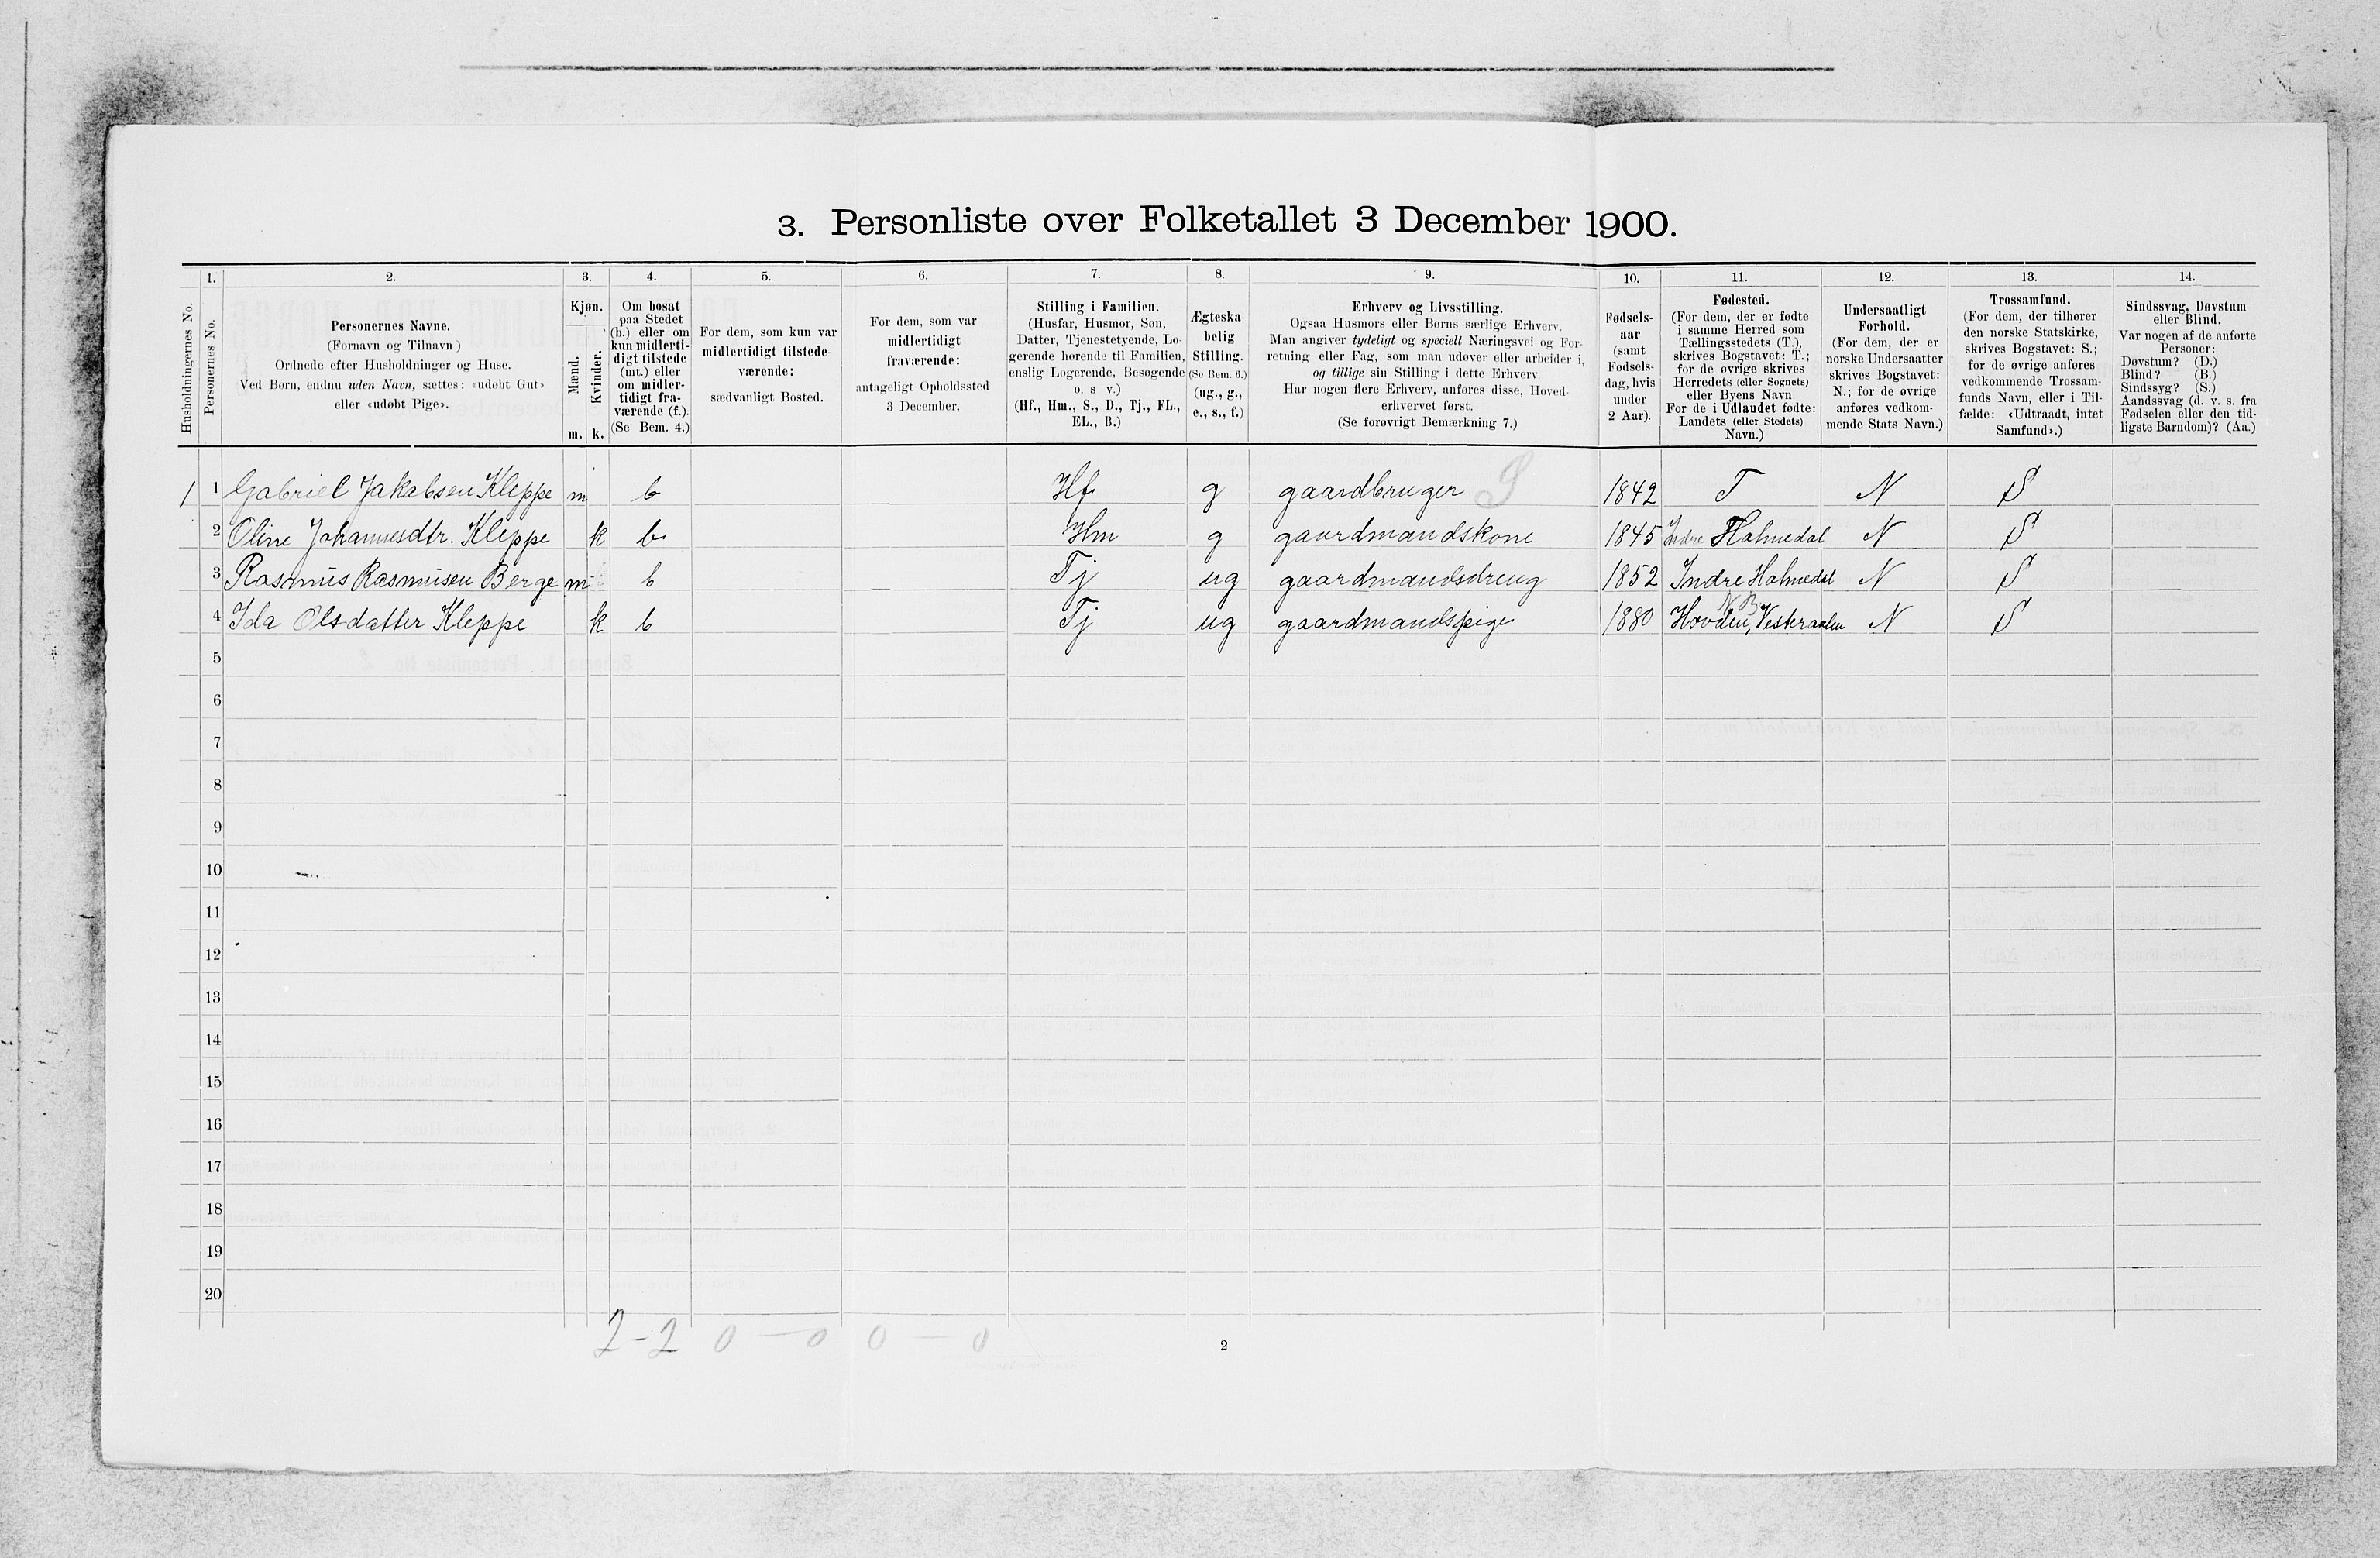 3. Personliste over Folketallet 3 December 1900.
Husholdningernes No.
1.
Personernes No.
2.
Personernes Navne.
(Fornavn og Tilnavn)
Ordnede efter Husholdninger og Huse.
Ved Børn, endnu uden Navn, sættes: «udøbt Gut»
eller «udøbt Pige».
3.
Kjøn.
Mænd.
Kvinder.
m. k.
4.
Om bosat
paa Stedet
(b.) eller om
kun midlerti-
digt tilstede
(mt.) eller
om midler-
tidigt fra-
værende (f.).
(Se Bem. 4.)
5.
For dem, som kun var
midlertidigt tilstede-
værende:
sædvanligt Bosted.
6.
For dem, som var
midlertidigt
fraværende:
antageligt Opholdssted
3 December.
7.
Stilling i Familien.
(Husfar, Husmor, Søn,
Datter, Tjenestetyende, Lo-
gerende hørende til Familien,
enslig Logerende, Besøgende
o. s v.)
(Hf., Hm., S., D., Tj., FL.,
EL., B.)
8.
Ægteska-
belig
Stilling.
(Se Bem. 6.)
(ug., g.,
e., s., f.)
9.
Erhverv og Livsstilling.
Ogsaa Husmors eller Børns særlige Erhverv.
Man angiver tydeligt og specielt Næringsvei og For-
retning eller Fag, som man udøver eller arbeider i,
og tillige sin Stilling i dette Erhverv
Har nogen flere Erhverv, anføres disse, Hoved-
erhvervet først.
(Se forøvrigt Bemærkning 7.)
10.
Fødsels-
aar
(samt
Fødsels-
dag, hvis
under
2 Aar).
11.
Fødested.
(For dem, der er fødte
i samme Herred som
Tællingsstedets (T.),
skrives Bogstavet: T.;
for de øvrige skrives
Herredets (eller Sognets)
eller Byens Navn
For de i Udlandet fødte:
Landets (eller Stedets)
Navn.)
12.
Undersaatligt
Forhold.
(For dem, der er
norske Undersaatter
skrives Bogstavet:
N.; for de øvrige
anføres vedkom-
mende Stats Navn.)
13.
Trossamfund.
(For dem, der tilhører
den norske Statskirke,
skrives Bogstavet: S.;
for de øvrige anføres
vedkommende Trossam-
funds Navn, eller i Til-
fælde: «Udtraadt, intet
Samfund».)
14.
Sindssvag, Døvstum
eller Blind.
Var nogen af de anførte
Personer:
Døvstum? (D.)
Blind? (B.)
Sindssyg? (S.)
Aandssvag (d. v. s. fra
Fødselen eller den tid-
ligste Barndom)? (Aa.)
1 1 Gabriel Jakabsen Kleppe m b Hf g gaardbruger S 1842 T N S
2 Oline Johannesdtr. Kleppe k b Hm g gaardmandskone 1845 Indre Holmedal N S
3 Rasmus Rasmusen Berge m b Tj ug gaardmandsdreng 1852 Indre Holmedal N S
N B
4 Ida Olsdatter Kleppe k b Tj ug gaardmandspige 1880 Hovden, Vesteraalen N S
5
6
7
8
9
10
11
12
13
14
15
16
17
18
19
20
2-2 0 — 0 0 — 0
2